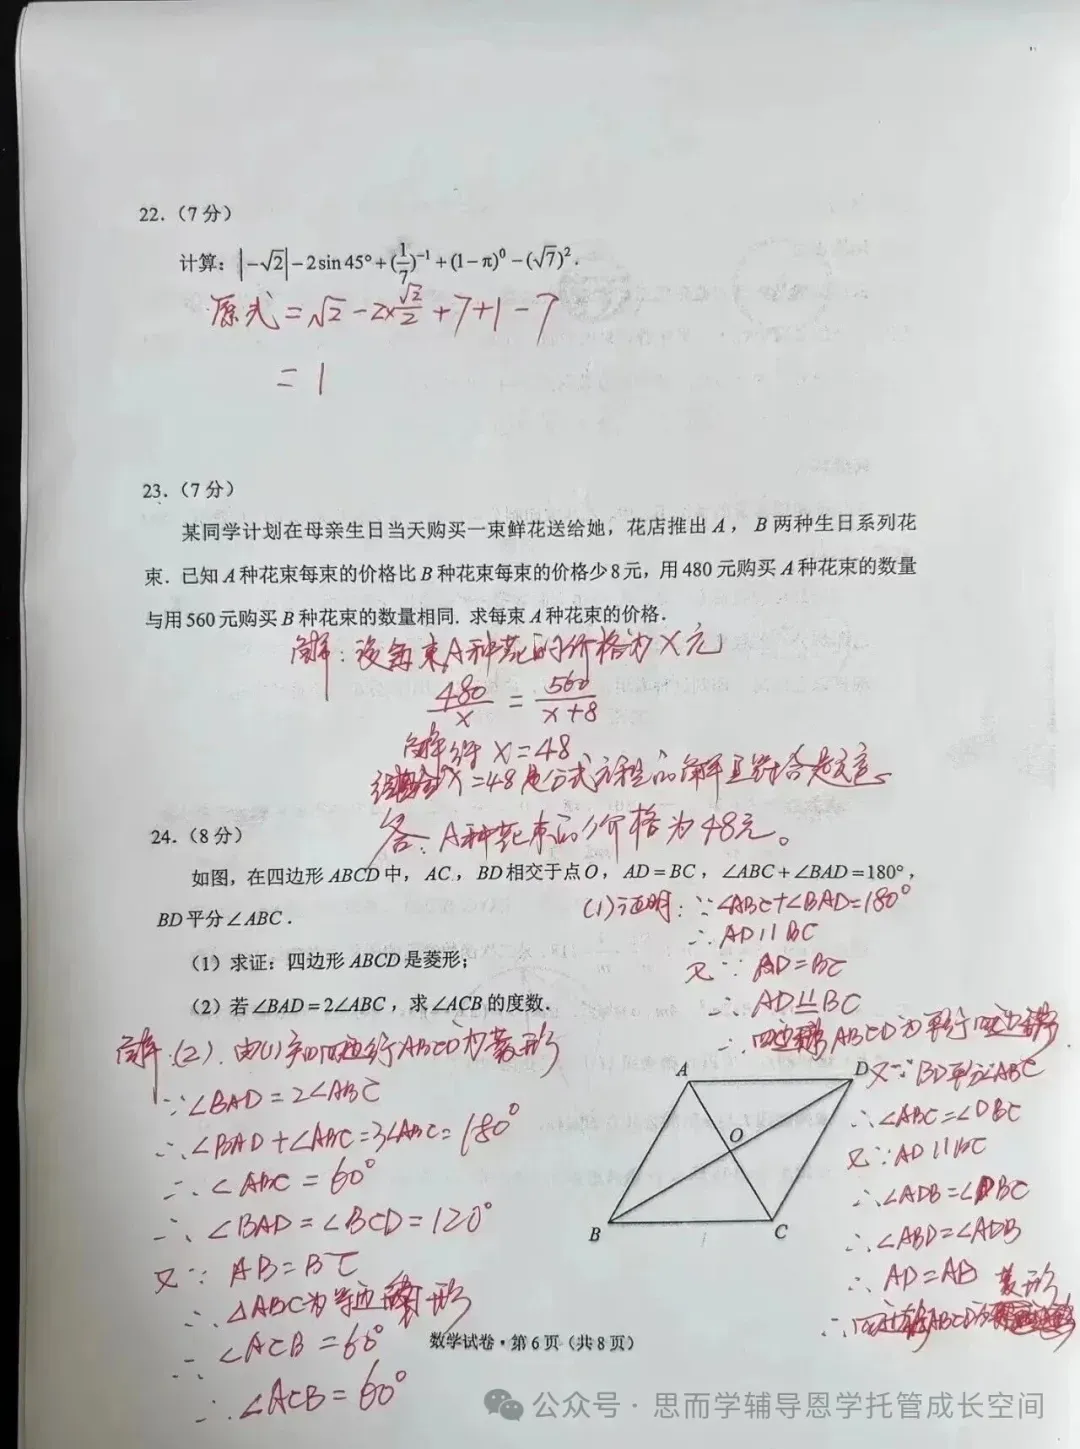 22.（7分）
计算：|-√2|-2sin45°+(1/7)⁻¹+(1-π)⁰-(√7)².
原式=√2-2×√2/2+7+1-7
=1
23.（7分）
某同学计划在母亲生日当天购买一束鲜花送给她，花店推出A，B两种生日系列花
束．已知A种花束每束的价格比B种花束每束的价格少8元，用480元购买A种花束的数量
与用560元购买B种花束的数量相同. 求每束A种花束的价格.
解：设每束A种花的价格为x元
480/x=560/(x+8)
解得x=48
x=48是分式方程的解且符合题意。
答：A种花束的价格为48元。
24.（8分）
如图，在四边形ABCD中，AC，BD相交于点O，AD=BC，∠ABC+∠BAD=180°，
BD平分∠ABC.
（1）求证：四边形ABCD是菱形；
（2）若∠BAD=2∠ABC，求∠ACB的度数.
(1)证明：∵∠ABC+∠BAD=180°
∴AD∥BC
又∵AD=BC
∴AD BC
∴四边形ABCD为平行四边形
又∵BD平分∠ABC
∴∠ABC=∠DBC
又∵AD∥BC
∴∠ADB=∠DBC
∴∠ABD=∠ADB
∴AD=AB
∴四边形ABCD为菱形
解：(2)．由(1)知四边行ABCD为菱形
∵∠BAD=2∠ABC
∴∠BAD+∠ABC=3∠ABC=180°
∴∠ABC=60°
∴∠BAD=∠BCD=120°
又∵AB=BC
∴△ABC为等边 形
∴∠ACB=60°
∴∠ACB=60°
A
D
O
B
C
数学试卷·第6页（共8页）
公众号·思而学辅导恩学托管成长空间